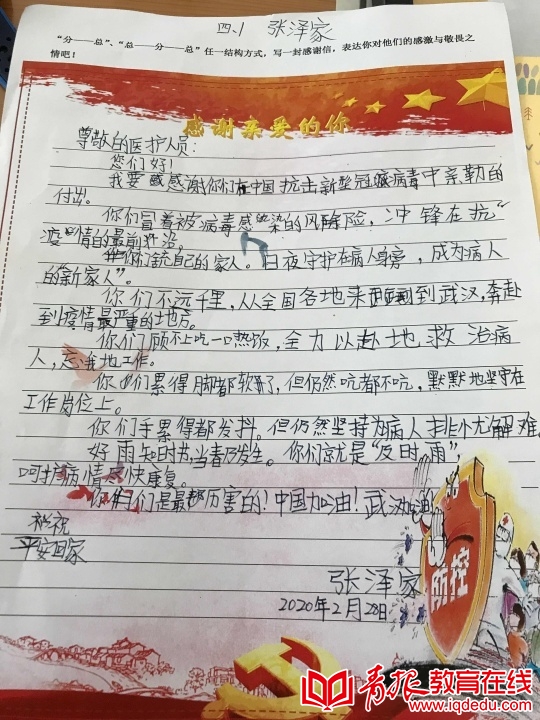 四、1 张泽家
“分——总”、“总——分——总”任一结构方式，写一封感谢信，表达你对他们的感激与敬畏之
情吧！
感谢亲爱的你
尊敬的医护人员：
您们好！
我要感谢你们在中国抗击新型冠状病毒中亲勒的
付出。
你们冒着被病毒感染的风险，冲锋在抗“
疫”情的最前沿。
你们舍自己的家人。日夜守护在病人身旁，成为病人
的“新家人”。
你们不远千里，从全国各地来到武汉，奔赴
到疫情最严重的地方。
你们顾不上吃一口热饭，全力以赴地救治病
人，忘我地工作。
你们累得脚都软了，但仍然吭都不吭，默默地坚守在
工作岗位上。
你们手累得都发抖。但仍然坚持为病人排忧解难。
好雨知时节，当春乃发生。你们就是“及时雨”，
呵护病情尽快康复。
你们是最厉害的！中国加油！武汉加油
祝
平安回家
张泽家
2020年2月28日
防控
青报教育在线
www.iqdedu.com